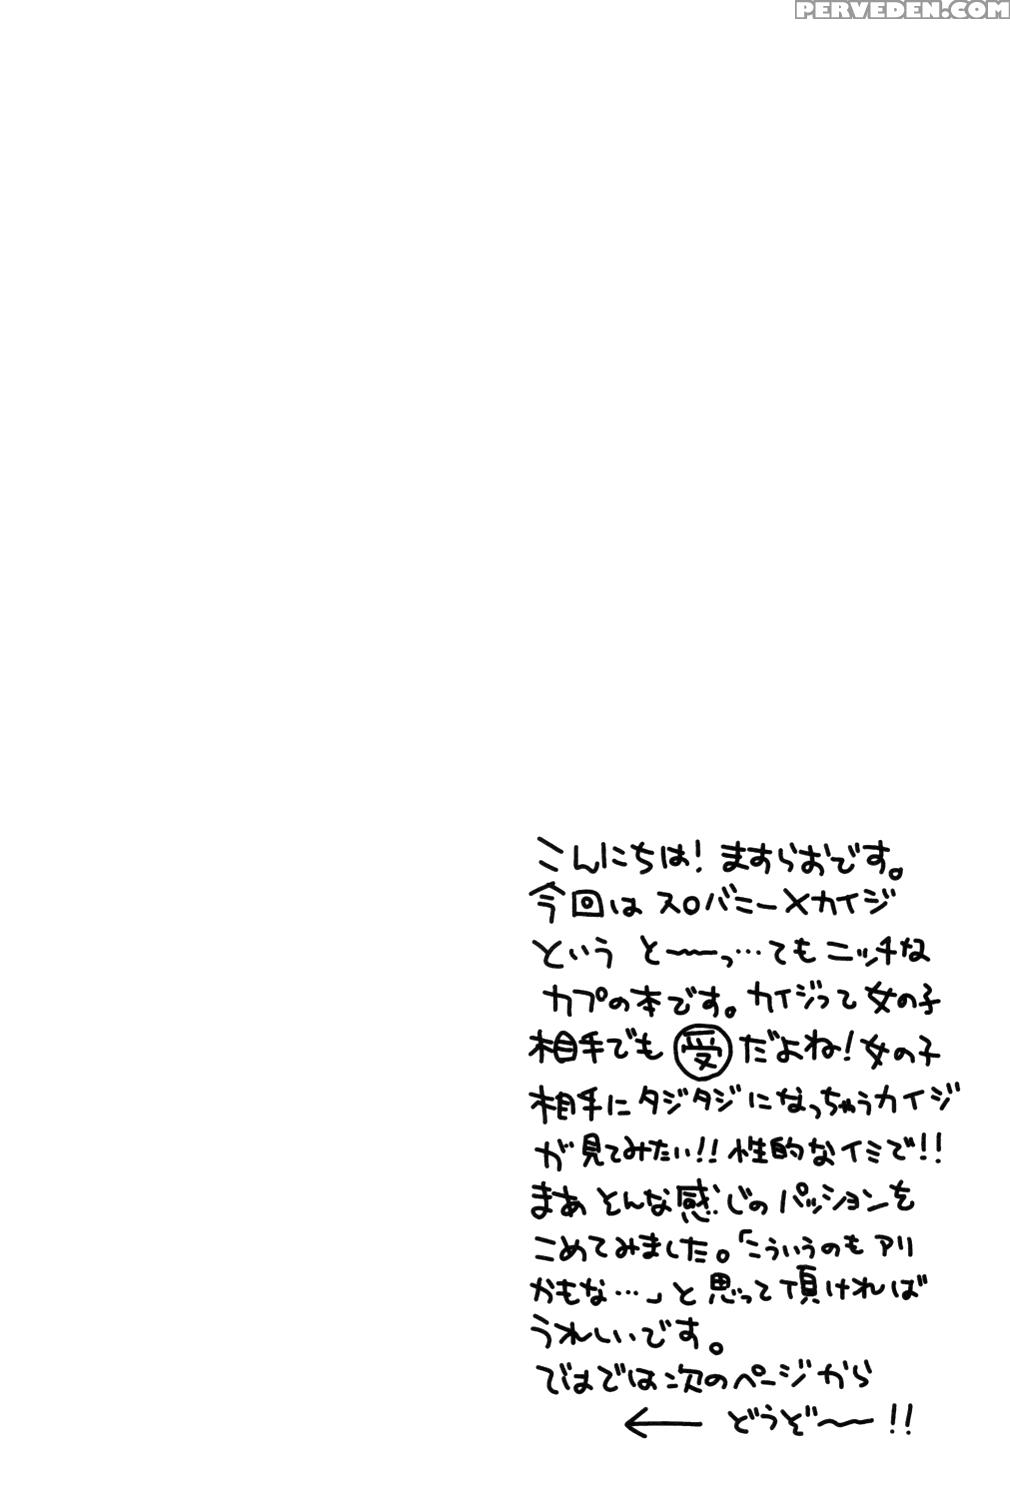 PERVEDEN.COM
こんにちは!ますらおです。
今回はスロバミー×カイジ
という と〜〜っ…てもニッチな
カプの本です。カイジって女の子
相手でも受だよね!女の子
相手にタジタジになっちゃうカイジ
が見てみたい!!性的なイミで!!
まあそんな感じのパッションを
こめてみました。「こういうのもアリ
かもな…」と思って頂ければ
うれしいです。
ではでは次のページから
← どうぞ〜〜!!